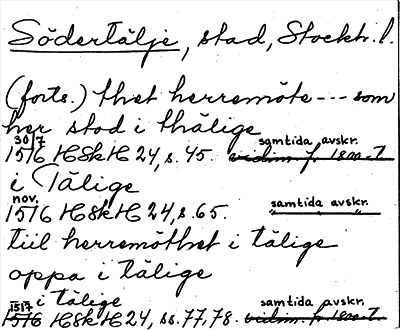 Södertälje, stad, Stockh. l.
(forts.) thet herremöte --- som
her stod i thälige
30/7 samtida avskr.
1516 HSkH 24, s. 45. vidim. f. 1800-t.
i Tälige
nov.
1516 HSkH 24, s. 65. samtida avskr.
tiil herremöthet i tälige
oppa i tälige
1517 i tälige samtida avskr.
1516 HSkH 24, ss. 77, 78. vidim. fr. 1800-t.